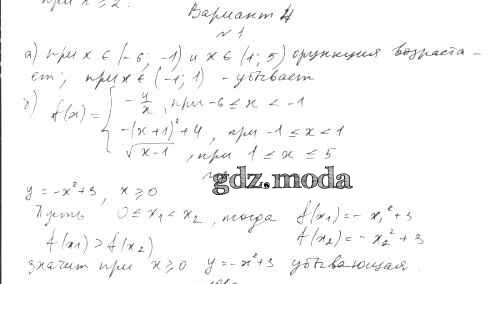 при x ≥ 2.
Вариант 4
№ 1
а) при x ∈ (-6; -1) и x ∈ (1; 5) функция возраста-
ет; при x ∈ (-1; 1) - убывает
б) f(x) = { -4/x, при -6 ≤ x < -1
-(x+1)²+4, при -1 ≤ x < 1
√x-1, при 1 ≤ x ≤ 5
gdz.moda
y = -x²+3, x ≥ 0
Пусть 0 ≤ x₁ < x₂, тогда f(x₁) = -x₁²+3
f(x₁) > f(x₂) f(x₂) = -x₂²+3
значит при x ≥ 0 y = -x²+3 убывающая.